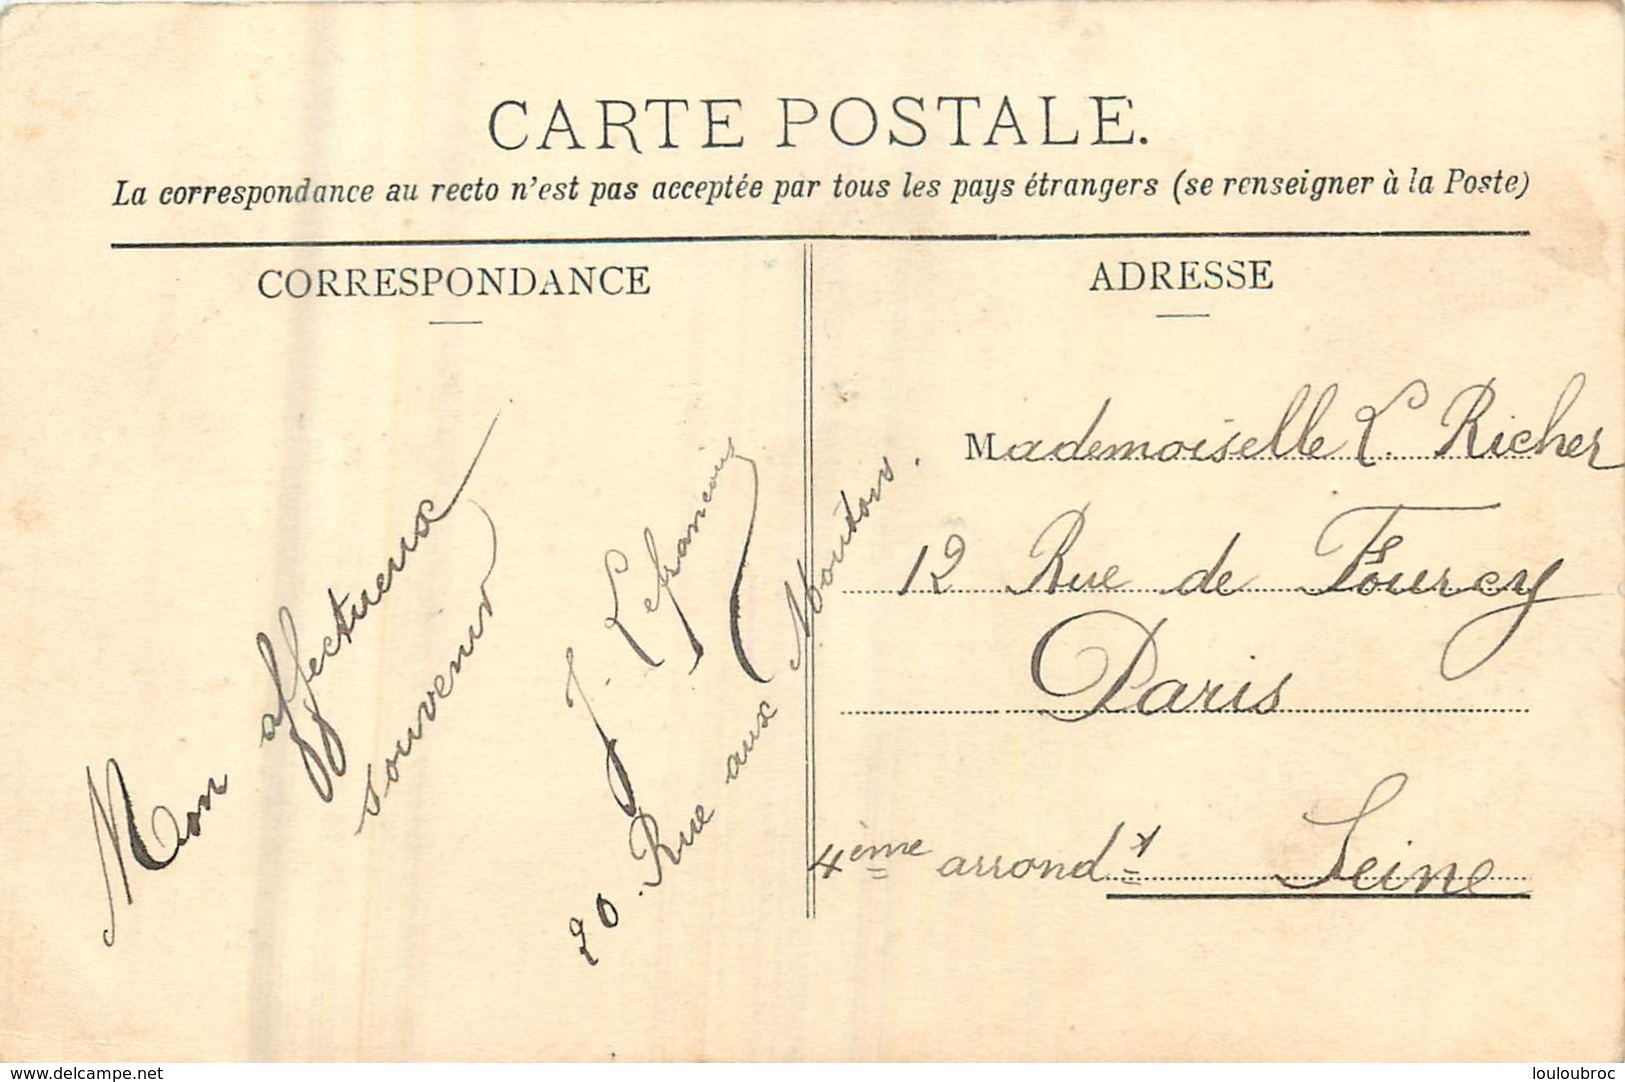 CARTE POSTALE.
La correspondance au recto n'est pas acceptée par tous les pays étrangers (se renseigner à la Poste)
CORRESPONDANCE
Mon affectueux
souvenir
J. Lefrançois
20. Rue aux Moutons.
ADRESSE
Mademoiselle L. Richer
12 Rue de Fourcy
Paris
4ème arrondt Seine
www.delcampe.net
louloubroc